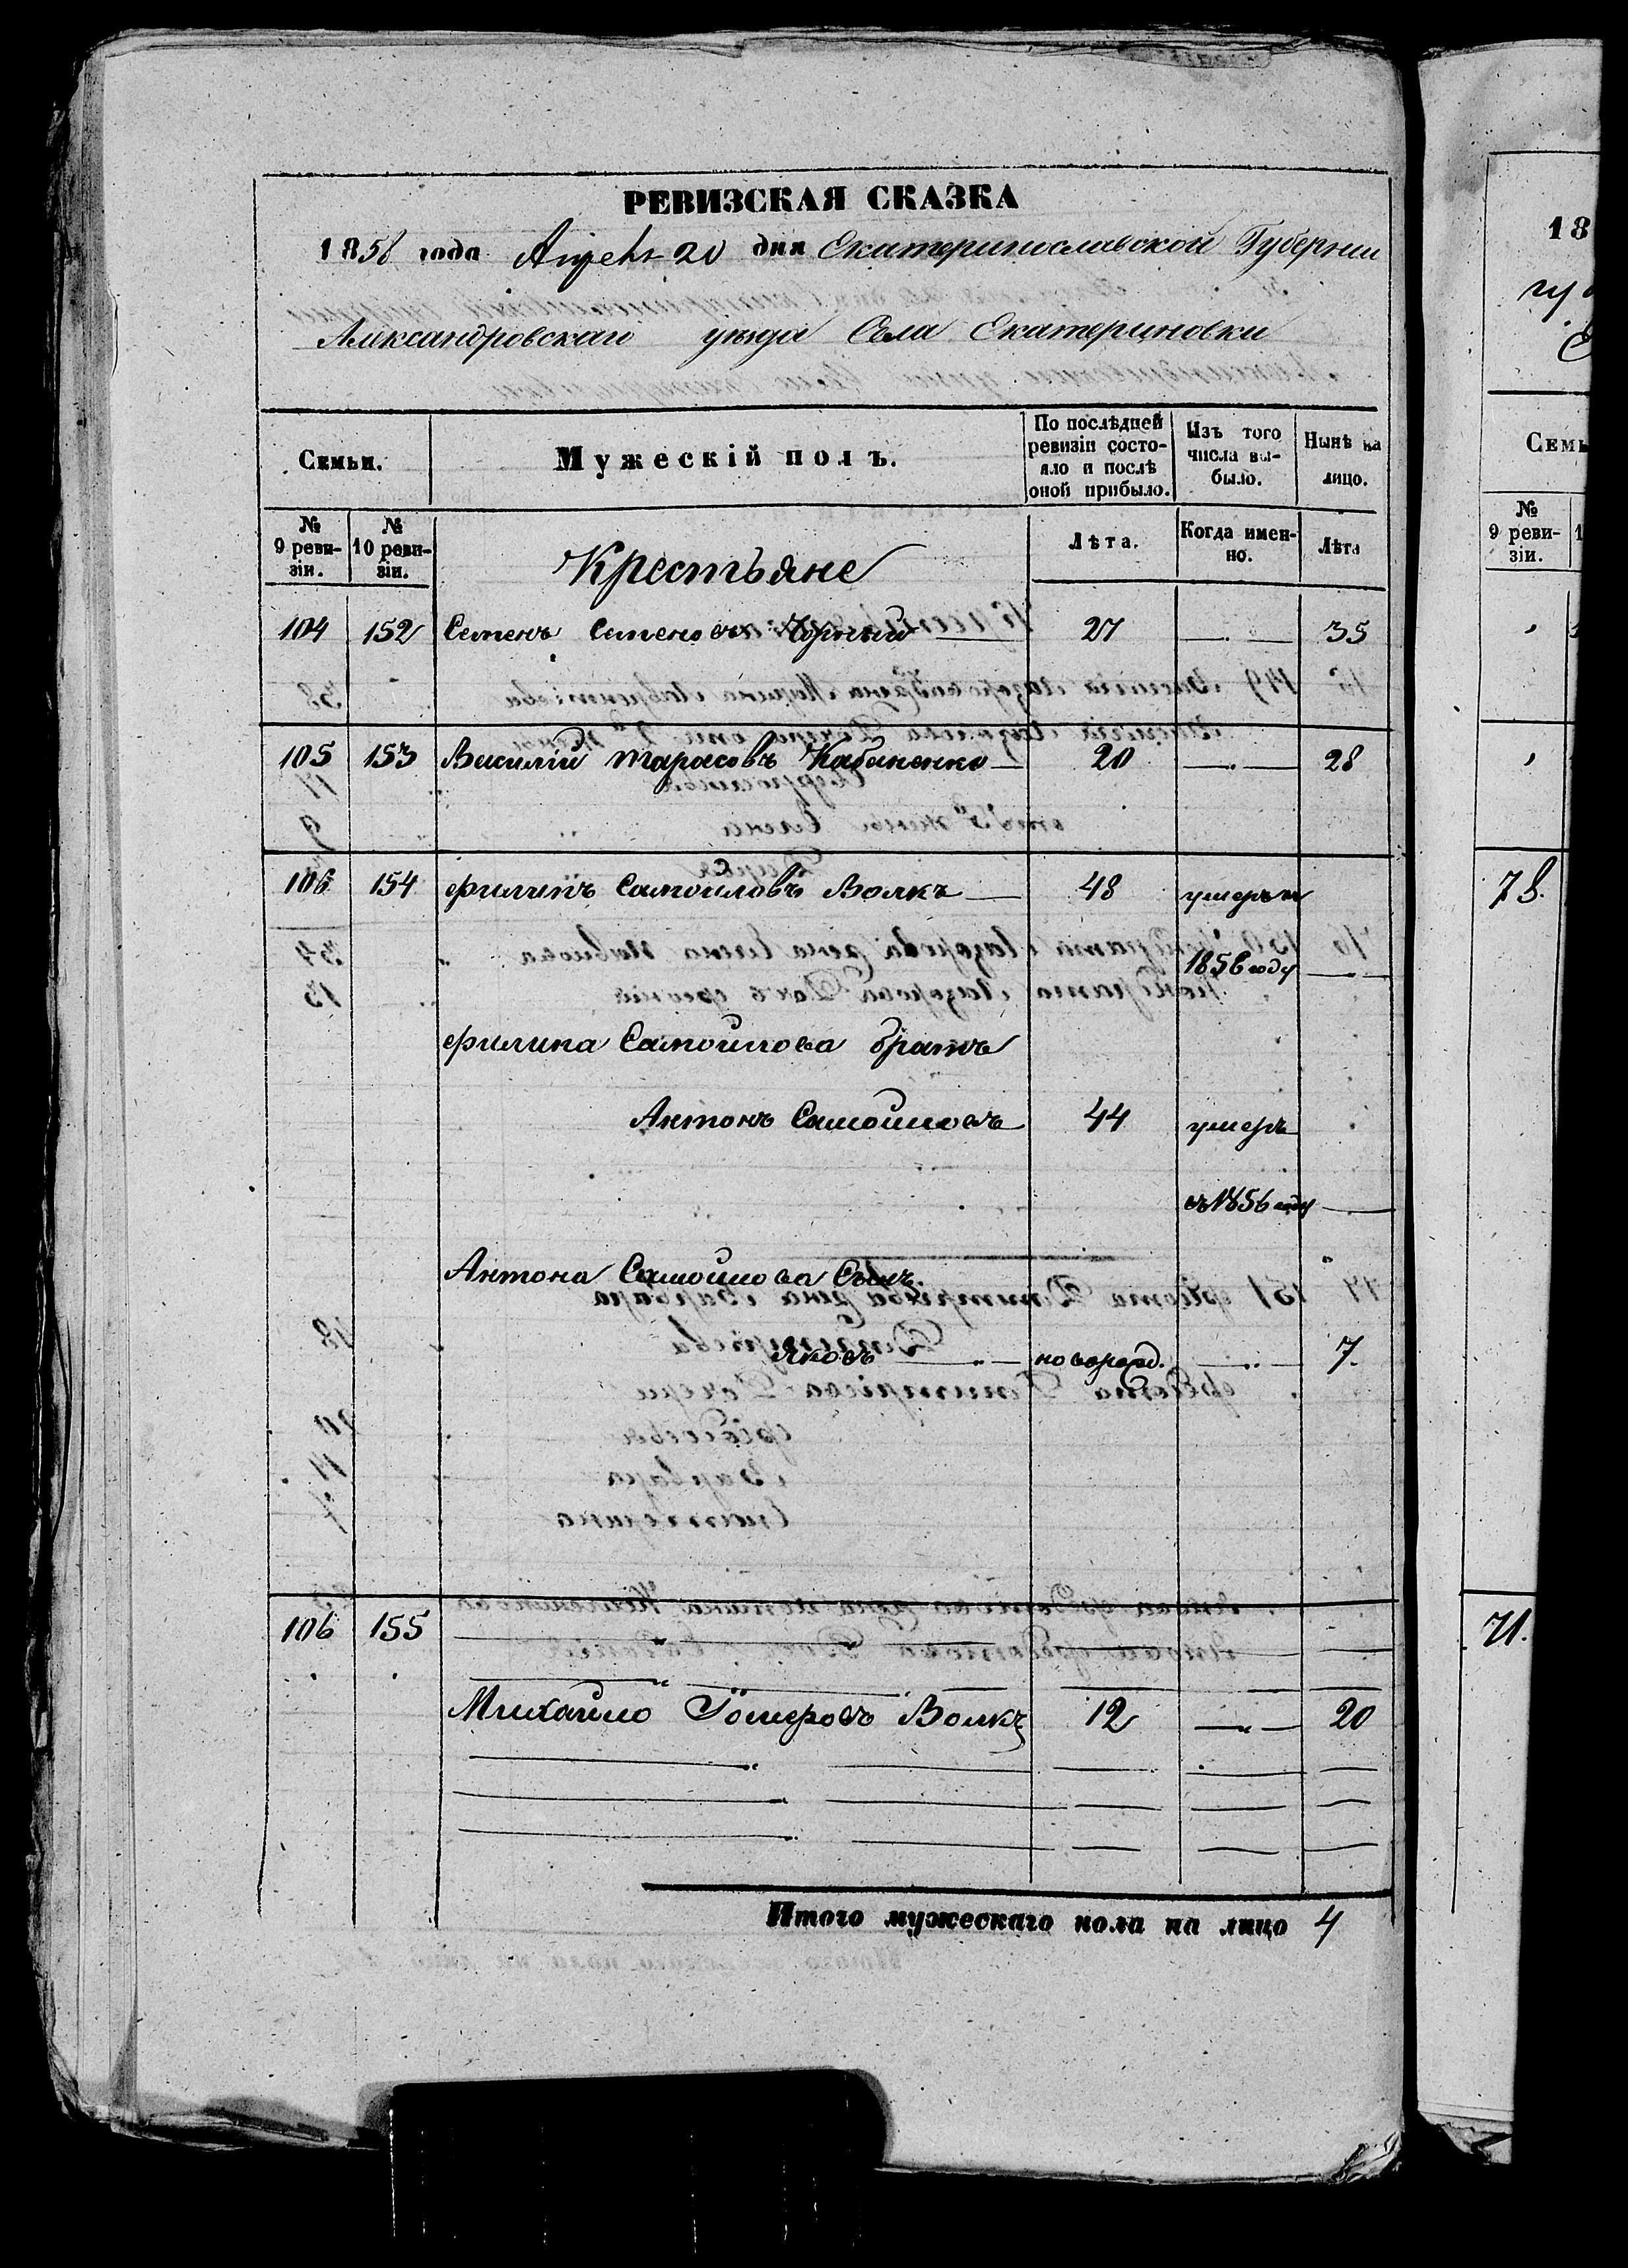 РЕВИЗСКАЯ СКАЗКА
1858 года Апреля 20 дня Екатеринославской Губернии
Александровскаго уезда Села Екатериновки
Семьи. Мужескій полъ. По послѣдней ревизіи состояло и послѣ оной прибыло. Изъ того числа выбыло. Нынѣ на лицо.
№ 9 ревизіи. № 10 ревизіи. Лѣта. Когда именно. Лѣта
Крестьяне
104 152 Семенъ Семеновъ Чорный 27 35
105 153 Василій Тарасовъ Кабаненко 20 28
106 154 Филипъ Самойловъ Волкъ 48 умеръ въ
1856 году
Филипа Самойлова братъ
Антонъ Самойловъ 44 умеръ
въ 1856 году
Антона Самойлова Сынъ
Яковъ новорожд. 7.
106 155
Михайло Гомеровъ Волкъ 12 20
Итого мужескаго пола на лицо 4
18
Семь
№
9 реви-
зіи.
78.
71.